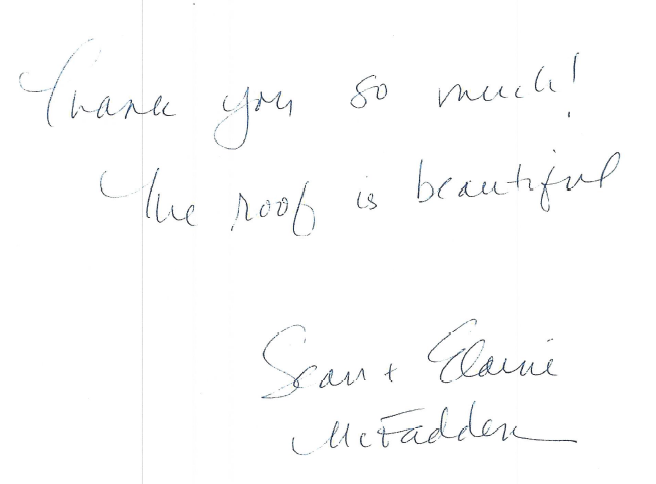 Thank you so much!
The roof is beautiful
Sean + Elaine
McFadden